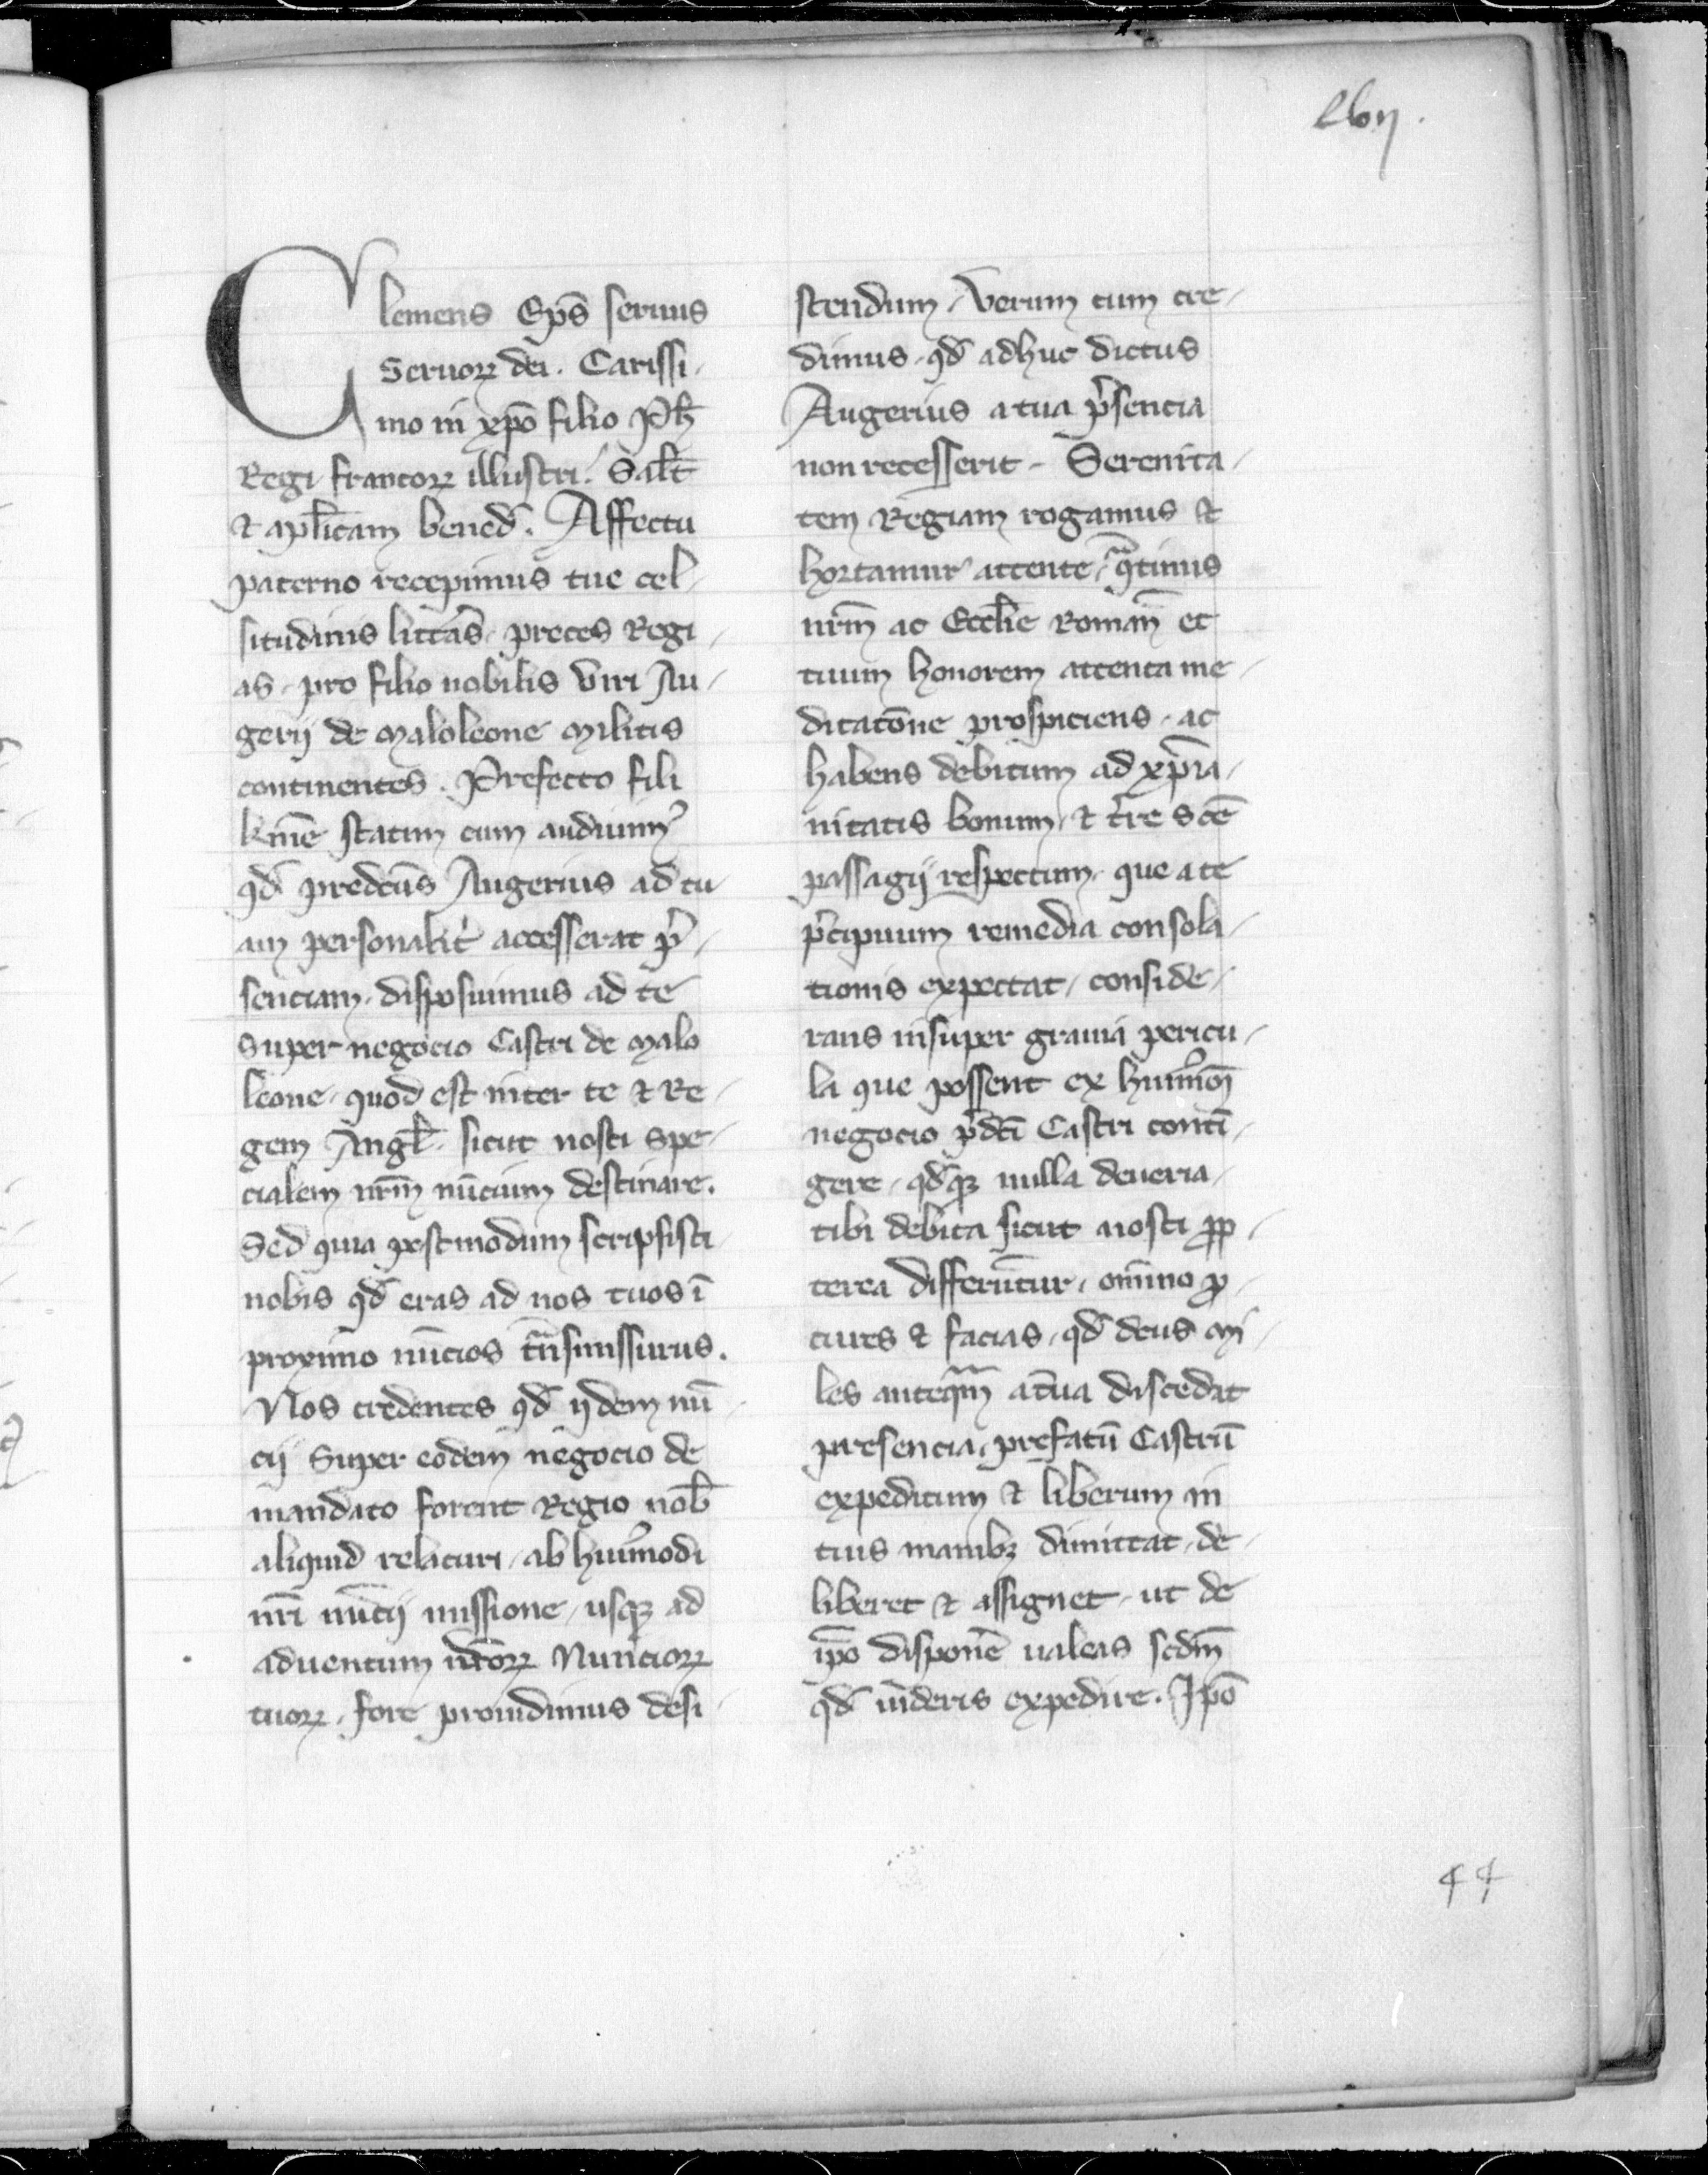 lvij.
Clemens Ep̄s seruus
Seruoꝝ dei. Carissi-
mo in xp̄o filio Ph̄
Regi francoꝝ illustri. Sal̄t
⁊ apl̄icam bened̄. Affectu
paterno recepimus tue cel-
situdinis litt̄as, preces Regi-
as, pro filio nobilis Viri Au-
gerij de Maloleone Militis
continentes. Prefecto fili
k̄me statim cum audiuim⁹
qd̄ predc̄us Augerius ad tu-
am personalit̄ accesserat p̄-
senciam, disposuimus ad te
super negocio Castri de Malo
leone, quod est inter te ⁊ Re-
gem Angl̄, sicut nosti spe-
cialem nr̄m nūcium destinare.
Sed quia postmodum scripsisti
nobis qd̄ eras ad nos tuos ī
proximo nūcios tn̄smissurus.
Nos credentes qd̄ ijdem nū-
cij super eodem negocio de
mandato forent Regio nob̄
aliquid relaturi, ab huiꝰmodi
nr̄i nūcij missione, usqꝫ ad
aduentum ip̄oꝝ Nuncioꝝ
tuoꝝ, fore prouidimus desi-
stendum, Verum cum cre-
dimus, qd̄ adhuc dictus
Augerius a tua p̄sencia
non recesserit, Serenita-
tem Regiam rogamus ⁊
hortamur attente, qᵃtinus
nr̄m ac Eccl̄ie Roman̄ et
tuum honorem attenta me-
ditatōne prospiciens, ac
habens debitum ad xp̄ia-
nitatis bonum, ⁊ t̄re Scē
passagij respectum, que a te
p̄cipuum remedia consola-
tionis expectat, conside-
rans insuper grauia pericu-
la que possent ex huiꝰmōi
negocio p̄dc̄i Castri conti-
gere, qd̄qꝫ nulla deueria
tibi debita sicut nosti ꝓp-
terea differūtur, omnino ꝓ-
cures ⁊ facias, qd̄ dc̄us Mi-
les anteqᵃm a tua discedat
presencia, prefatū Castrū
expeditum ⁊ liberum in
tuis manibꝫ dimittat, de-
liberet ⁊ assignet, ut de
ip̄o dispoñe ualeas scdm̄
qd̄ uideris expedire. Ip̄o
44